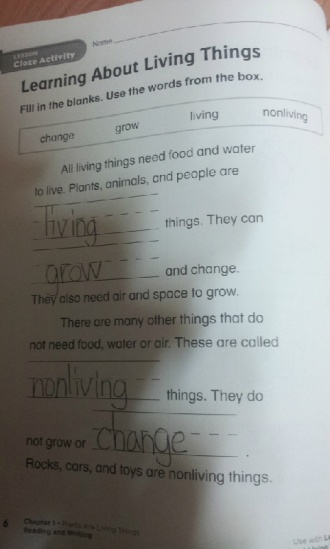 LESSON
Cloze Activity
Name
Learning About Living Things
Fill in the blanks. Use the words from the box.
change grow living nonliving
All living things need food and water
to live. Plants, animals, and people are
living things. They can
grow and change.
They also need air and space to grow.
There are many other things that do
not need food, water or air. These are called
nonliving things. They do
not grow or change.
Rocks, cars, and toys are nonliving things.
6 Chapter 1 • Plants Are Living Things
Reading and Writing
Use with